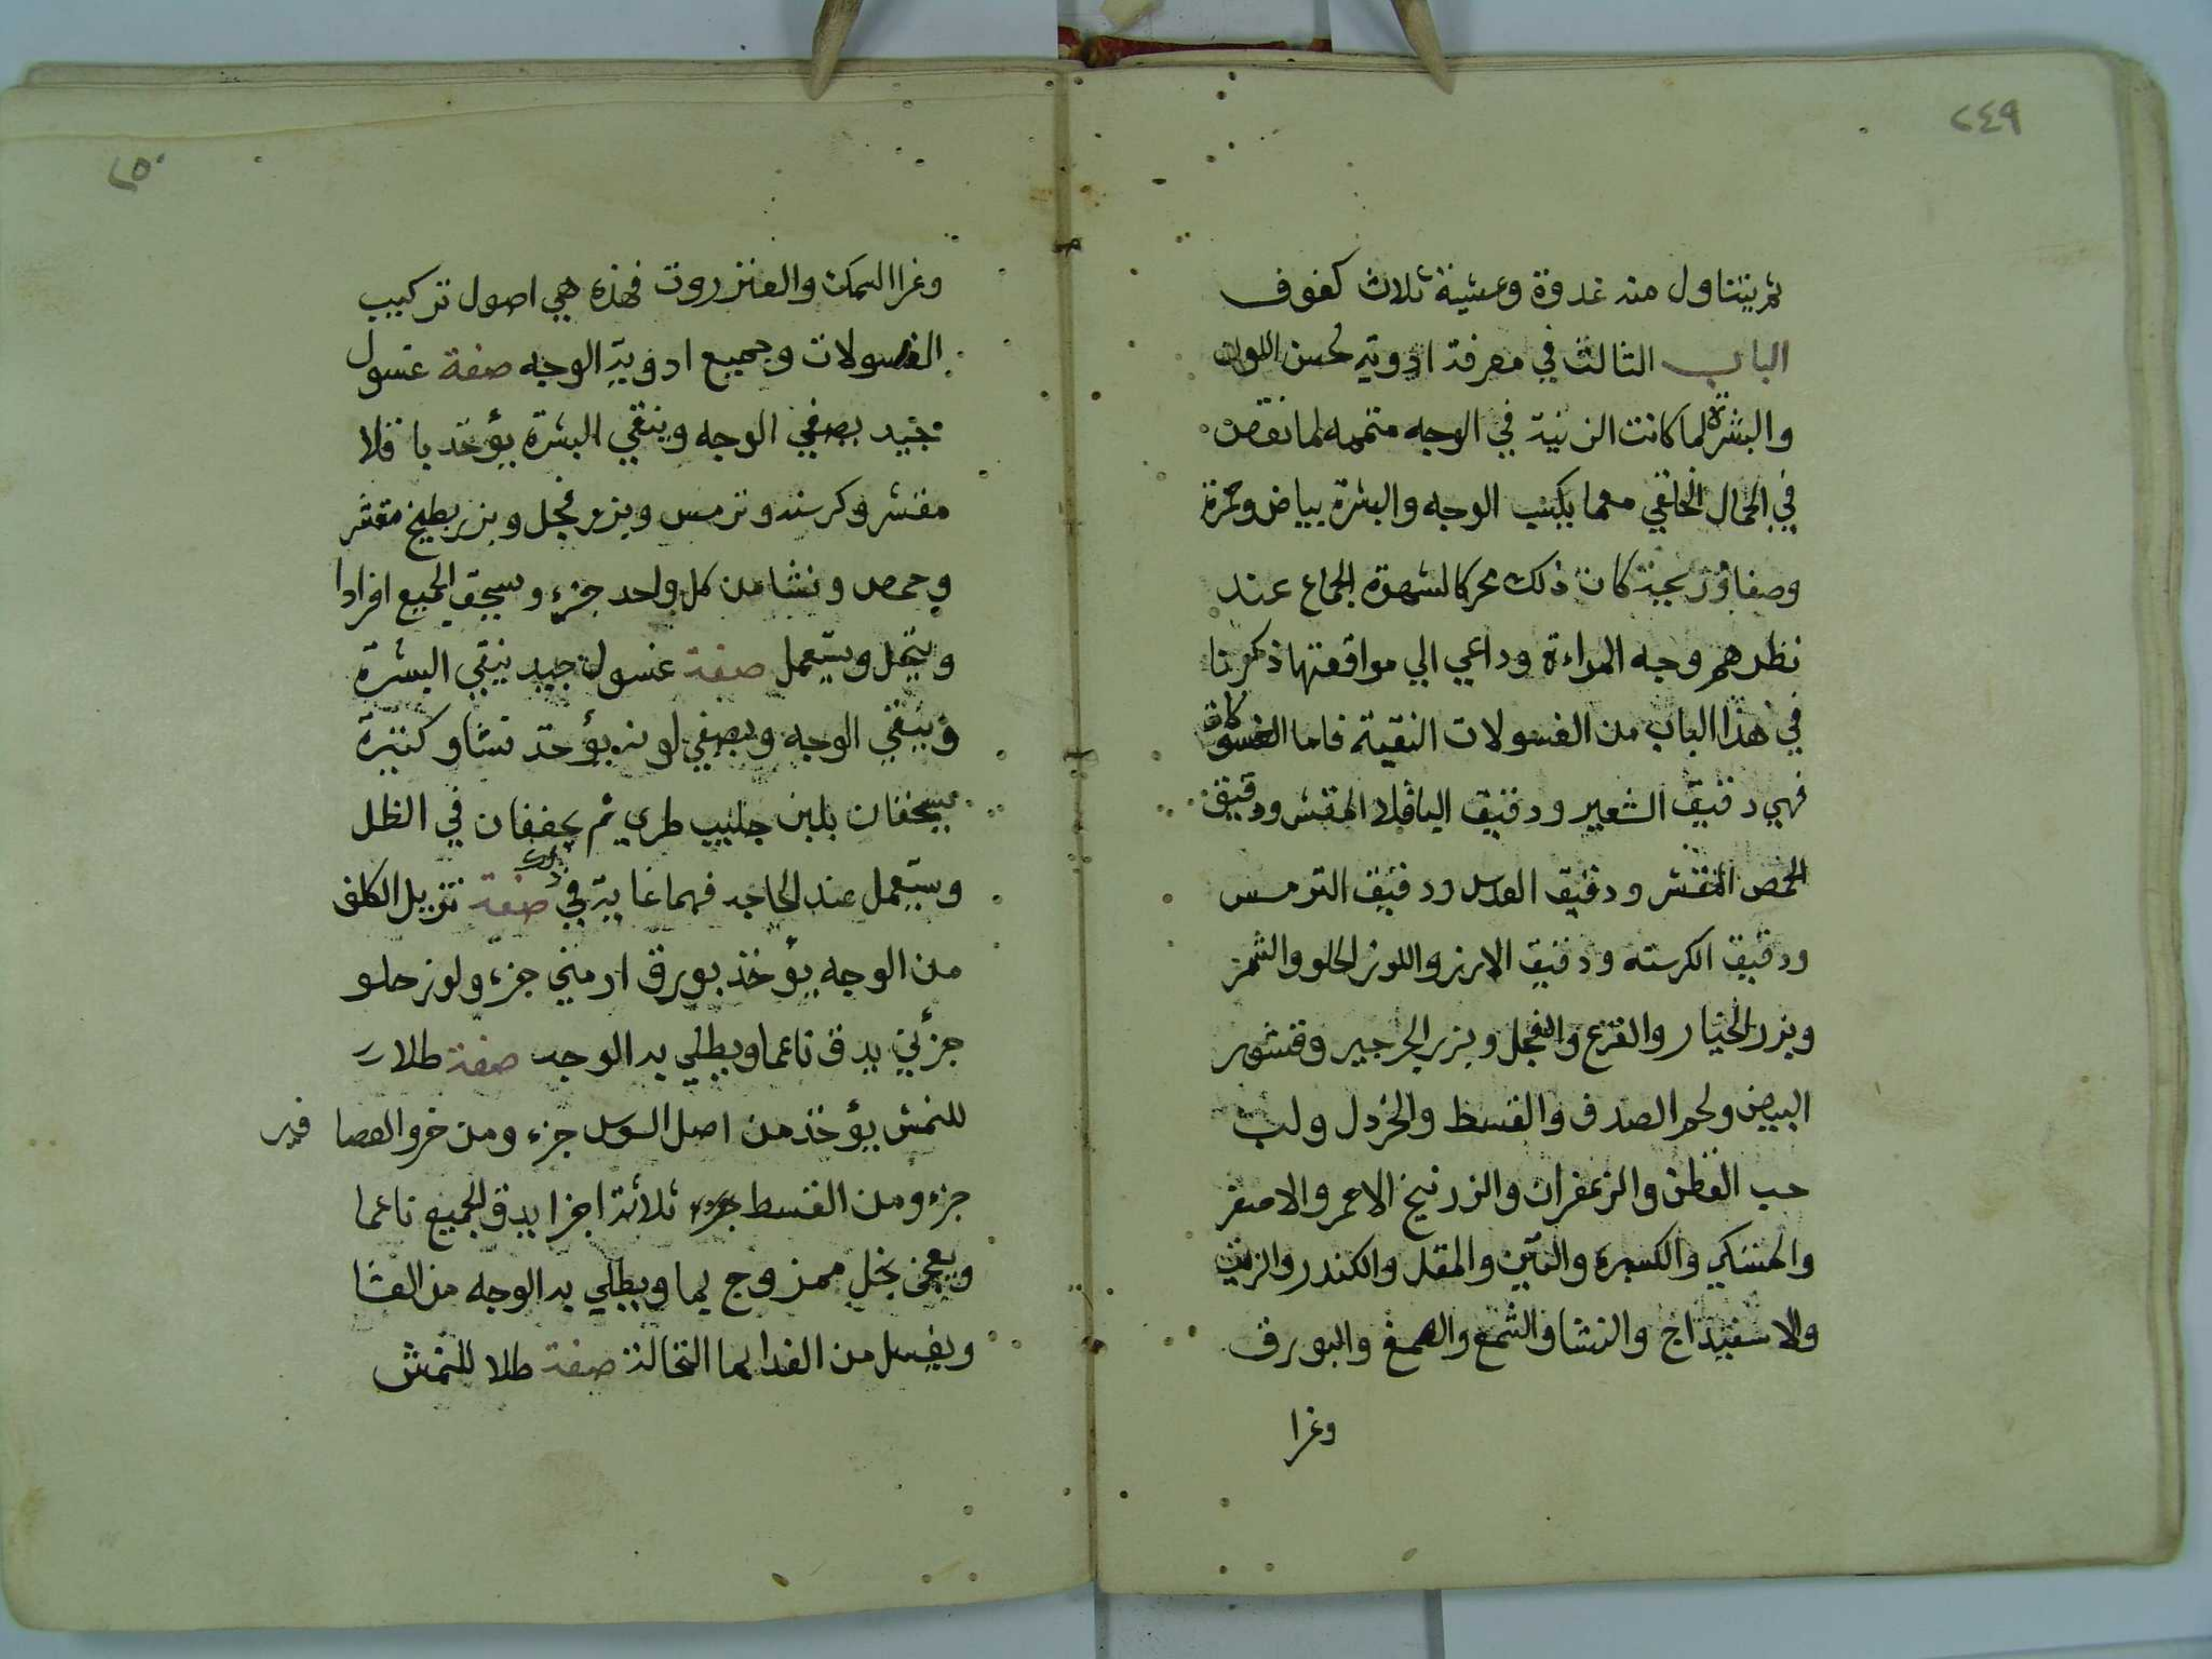 ٢٤٩
ثم يتناول منه غدوة وعشية ثلاث كفوف
الباب الثالث في معرفة ادوية لحسن اللون
والبشرة لما كانت الزنية في الوجه متممه لما نقص
في الجمال الخلقي مهما يكسب الوجه والبشرة بياض وحمرة
وصفاؤ بجة كان ذلك محركا لشهوة الجماع عند
نظرهم وجه المراءة وداعي الي مواقعتها ذكرنا
في هذا الباب من الغسولات النقية فاما الغسولات
فهي دقيق الشعير ودقيق الباقلا المقشر ودقيق
الحمص المقشر ودقيق العدس ودقيق الترمس
ودقيق الكرسنه ودقيق الارز واللوز الحلو والتمر
وبزر الخيار والقرع والفجل وبزر الجرجير وقشور
البيض ولحم الصدف والقسط والخردل ولب
حب القطن والزعفران والزرنيخ الاحمر والاصفر
والكسبره والتين والمقل والكندر
والاسفيداج والنشا والشمع والصمغ والبورق
وغرا
٢٥٠
وغرا السمك والعنزروت فهذه هي اصول تركيب
الغسولات وجميع ادوية الوجه صفة غسول
جيد يصفي الوجه وينقي البشرة يؤخذ باقلا
مقشر وكرسنه وترمس وبزر فجل وبزر بطيخ مقشر
وحمص ونشا من كل واحد جزء وسحق الجميع افرادا
وينخل ويستعمل صفة غسول جيد ينقي البشرة
وينقي الوجه ويصفي لونه يؤخذ نشا وكثيرة
يسحقان بلبن حليب طري ثم يجففان في الظل
ويستعمل عند الحاجه فهما غاية في ذلك صفة تزيل الكلف
من الوجه يؤخذ بورق ارمني جزء ولوز حلو
جزئين يدق ناعما ويطلي به الوجه صفة طلا
للنمش يؤخذ من اصل السوس جزء ومن خرو العصا فير
جزء ومن القسط ثلاثة اجزا يدق الجميع ناعما
ويعجن بخل ممزوج بما ويطلي به الوجه من العشا
ويغسل من الغدا بما النخالة صفة طلا للنمش